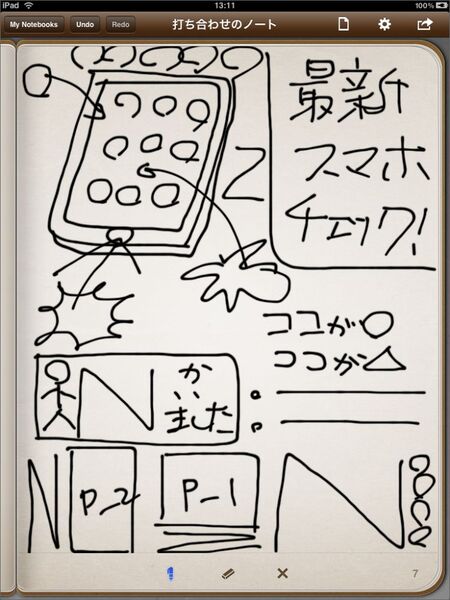 iPad 13:11 100%
My Notebooks Undo Redo 打ち合わせのノート
最新
スマホ
チェック!
ココが○
ココが△
かい
ました
P_2 P_1
7